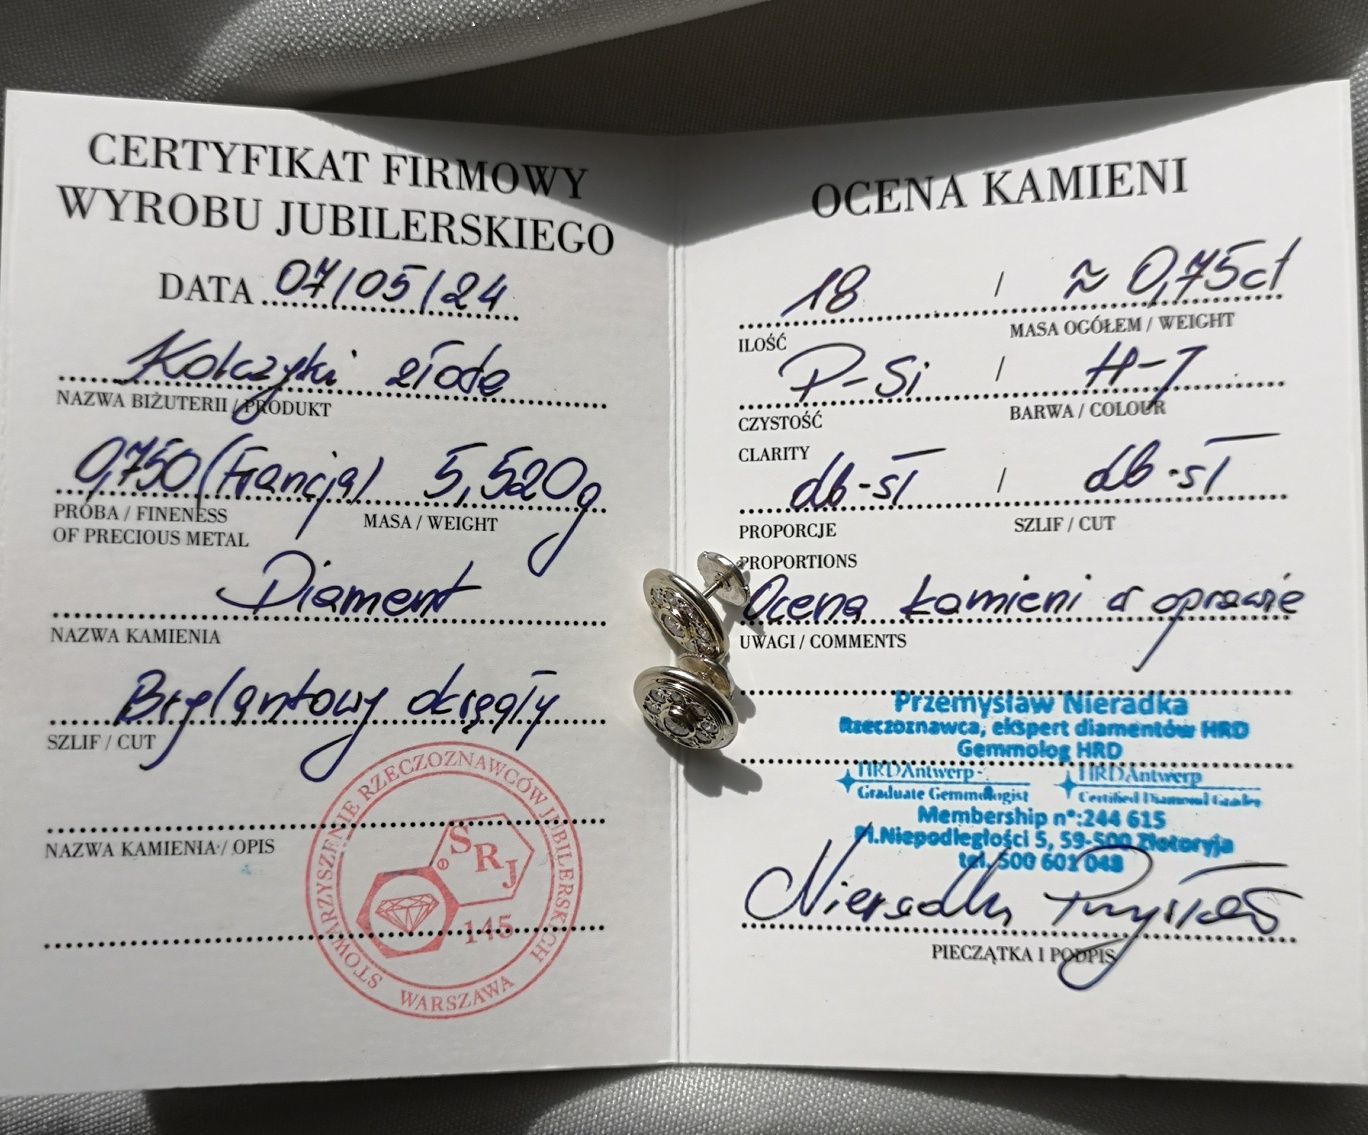 CERTYFIKAT FIRMOWY
WYROBU JUBILERSKIEGO
DATA 07/05/24
Kolczyki złote
NAZWA BIŻUTERII / PRODUKT
0,750 (Francja) 5,520g
PRÓBA / FINENESS MASA / WEIGHT
OF PRECIOUS METAL
Diament
NAZWA KAMIENIA
Brylantowy okrągły
SZLIF / CUT
NAZWA KAMIENIA / OPIS
STOWARZYSZENIE RZECZOZNAWCÓW JUBILERSKICH
SRJ
145
WARSZAWA
OCENA KAMIENI
18 / ≈ 0,75ct
ILOŚĆ MASA OGÓŁEM / WEIGHT
P-Si / H-J
CZYSTOŚĆ BARWA / COLOUR
CLARITY
db-st / db-st
PROPORCJE SZLIF / CUT
PROPORTIONS
Ocena kamieni w oprawie
UWAGI / COMMENTS
Przemysław Nieradka
Rzeczoznawca, ekspert diamentów HRD
Gemmolog HRD
HRD Antwerp HRD Antwerp
Graduate Gemmologist Certified Diamond Grader
Membership n°:244 615
Pl.Niepodległości 5, 59-500 Złotoryja
tel. 500 601 048
Nieradka Przemysław
PIECZĄTKA I PODPIS